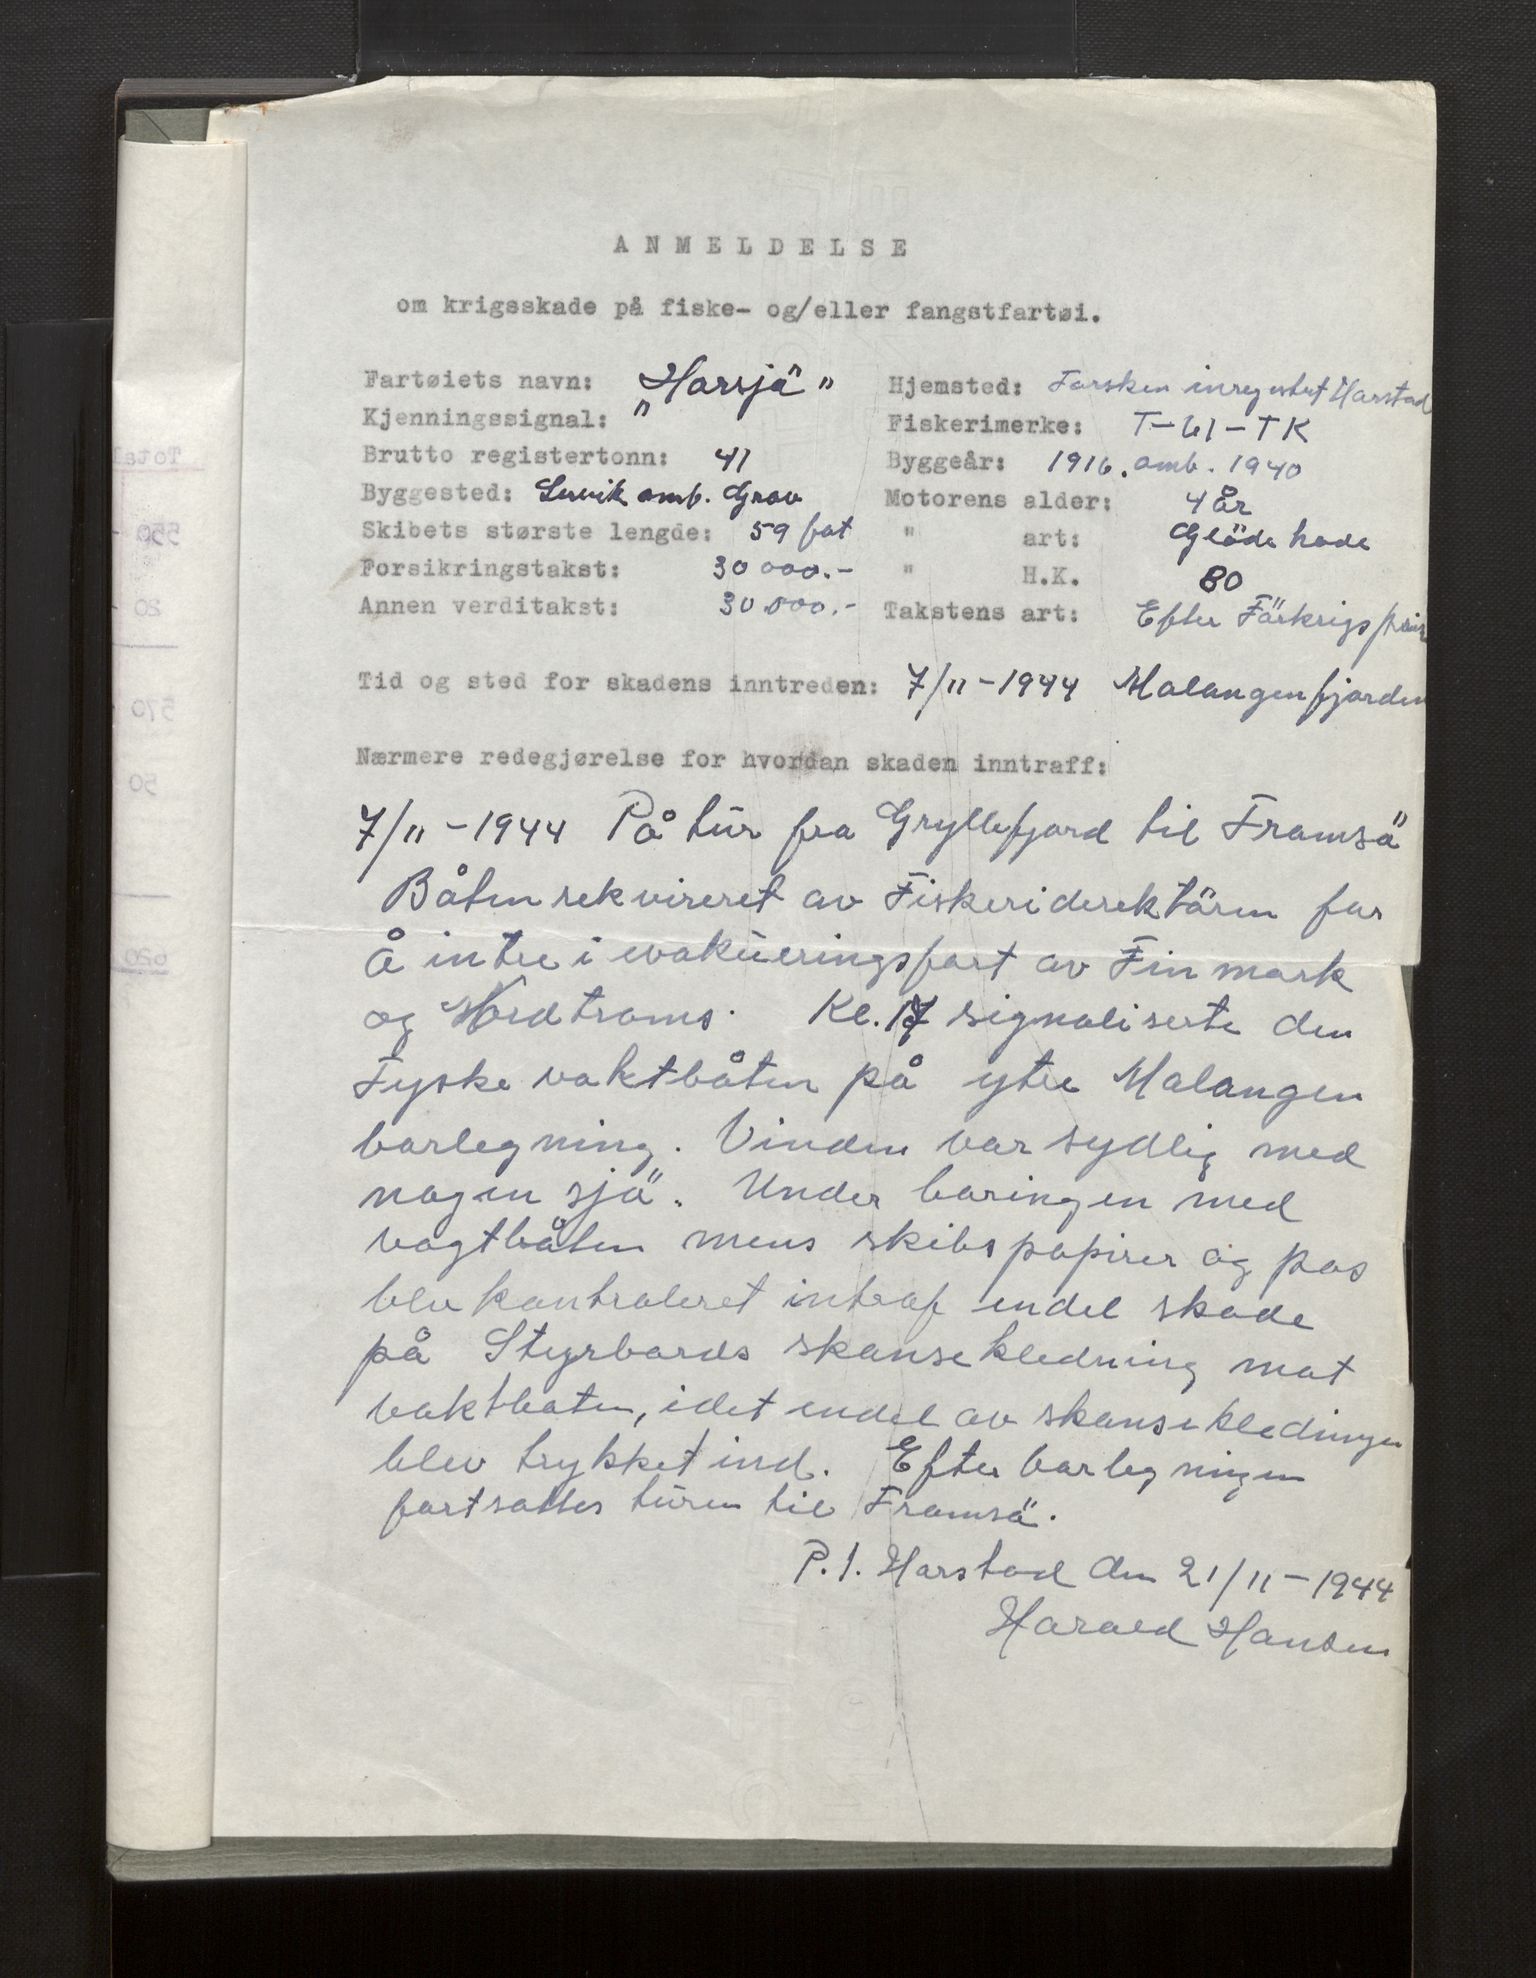 ANMELDELSE
om krigsskade på fiske- og/eller fangstfartøi.
Fartøiets navn: „Harsjä"
Hjemsted: Torsken inregestret Harstad
Kjenningssignal:
Fiskerimerke: T-61-TK
Brutto registertonn: 41
Byggeår: 1916. omb. 1940
Byggested: omb. Grov
Motorens alder: 4 år
Skibets største lengde: 59 fot
" art: Glöde hode
Forsikringstakst: 30 000.-
" H.K. 80
Annen verditakst: 30.000.-
Takstens art: Efter Förkrigs pris
Tid og sted for skadens inntreden: 7/11-1944 Malangenfjorden
Nærmere redegjørelse for hvordan skaden inntraff:
7/11-1944 På tur fra Gryllefjord til Tromsö
Båten rekvireret av Fiskeriderektören for
å intre i evakueringsfart av Finmark
og Nordtroms. Kl. 17 signaliserte den
Tyske vaktbåten på ytre Malangen
borlegning. Vinden var sydlig med
nogen sjö. Under boringen med
vagtbåten mens skibspapirer og pas
blev kontroleret intraf endel skade
på Styrbords skansekledning mot
vaktbåten, idet endel av skansekledningen
blev trykket ind. Efter borlegningen
fortsattes turen til Tromsö.
P.t. Harstad den 21/11-1944
Harald Hansen
Total
550
20
570
50
620